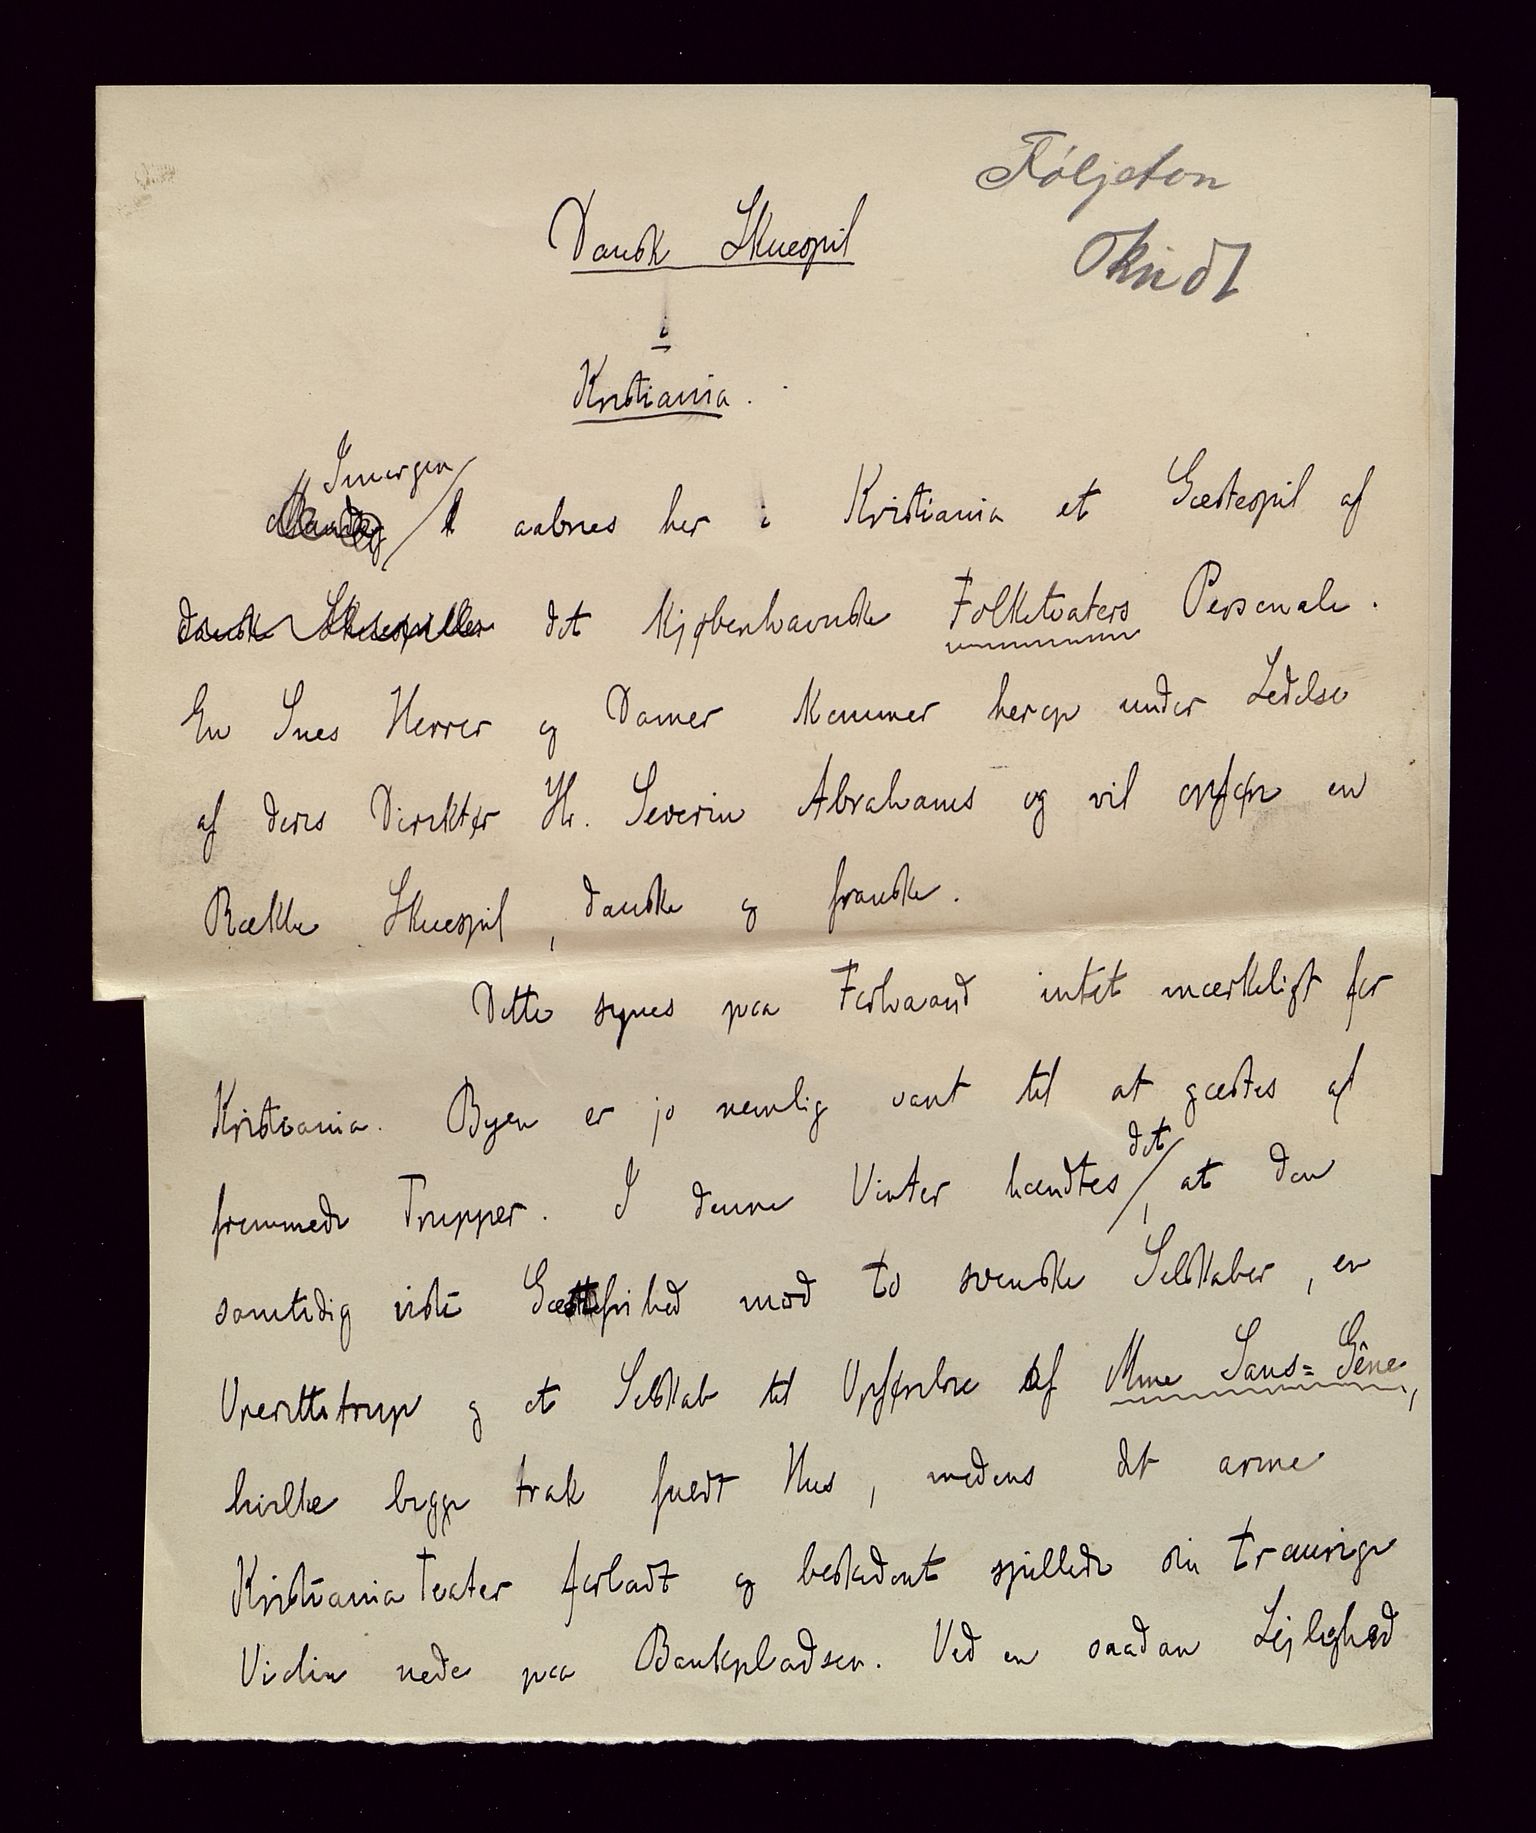 Føljeton
Dansk Skuespil
i
Kristiania.
Imorgen
aabnes her i Kristiania et Gæstespil af
dansk Skuespiller det kjøbenhavnske Folketeaters Personale.
En Snes Herrer og Damer kommer herop under Ledelse
af deres Direktør Hr. Severin Abrahams og vil opføre en
Række Skuespil, danske og franske.
Dette synes paa Forhaand intet mærkeligt for
Kristiania. Byen er jo nemlig vant til at gæstes af
det
fremmede Trupper. I denne Vinter hændtes, at den
samtidig viste Gæstfrihed mod to svenske Selskaber, en
Operettetrup og et Selskab til Opførelse af Mme Sans-Gêne,
hvilke begge trak fuldt Hus, medens det arme
Kristiania Teater forladt og beskedent spillede sin traurige
Violin nede paa Bankpladsen. Ved en saadan Lejlighed